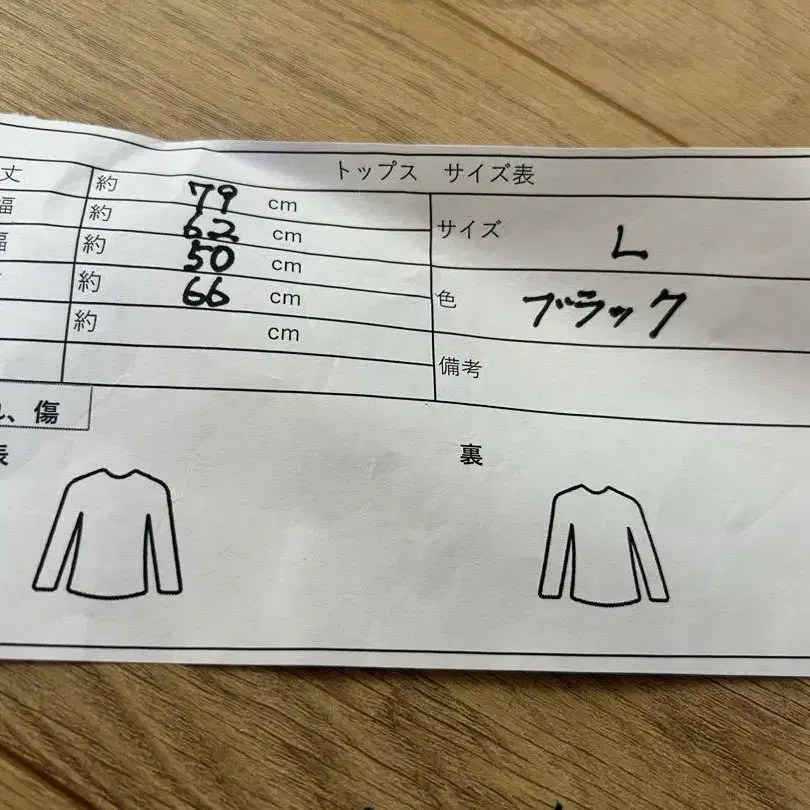 トップス サイズ表
丈 約 79 cm
幅 約 62 cm
幅 約 50 cm
約 66 cm
約 cm
サイズ L
色 ブラック
備考
、傷
表 裏